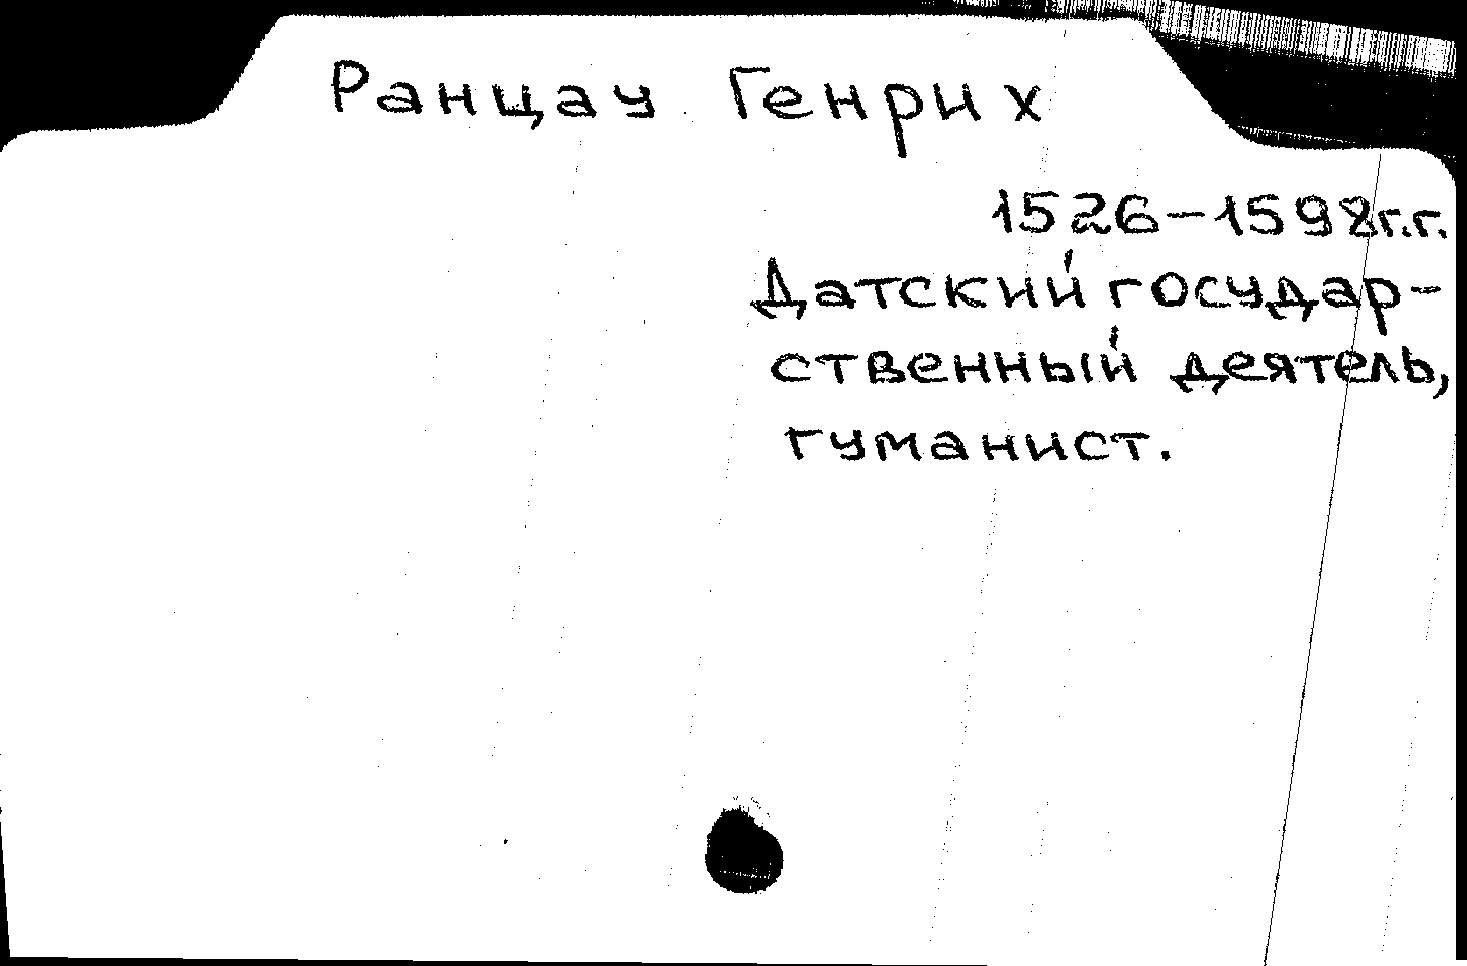 Ранцау Генрих
1526-1598г.г.
Датский государ-
ственный деятель,
гуманист.